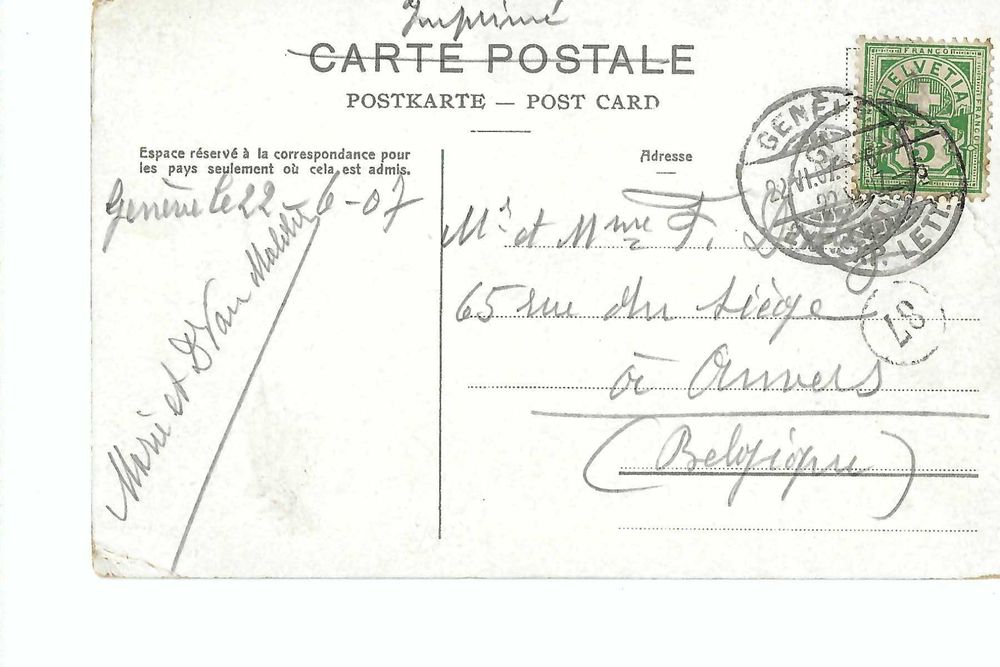 Imprimé
CARTE POSTALE
POSTKARTE — POST CARD
Espace réservé à la correspondance pour
les pays seulement où cela est admis.
Adresse
FRANCO
HELVETIA
FRANCO
5
GENÈVE
22.VI.07.
EXP. LETT.
Genève le 22-6-07
Marie et D Van
Mr et Mme F.
65 rue du Siège
à Anvers
(Belgique)